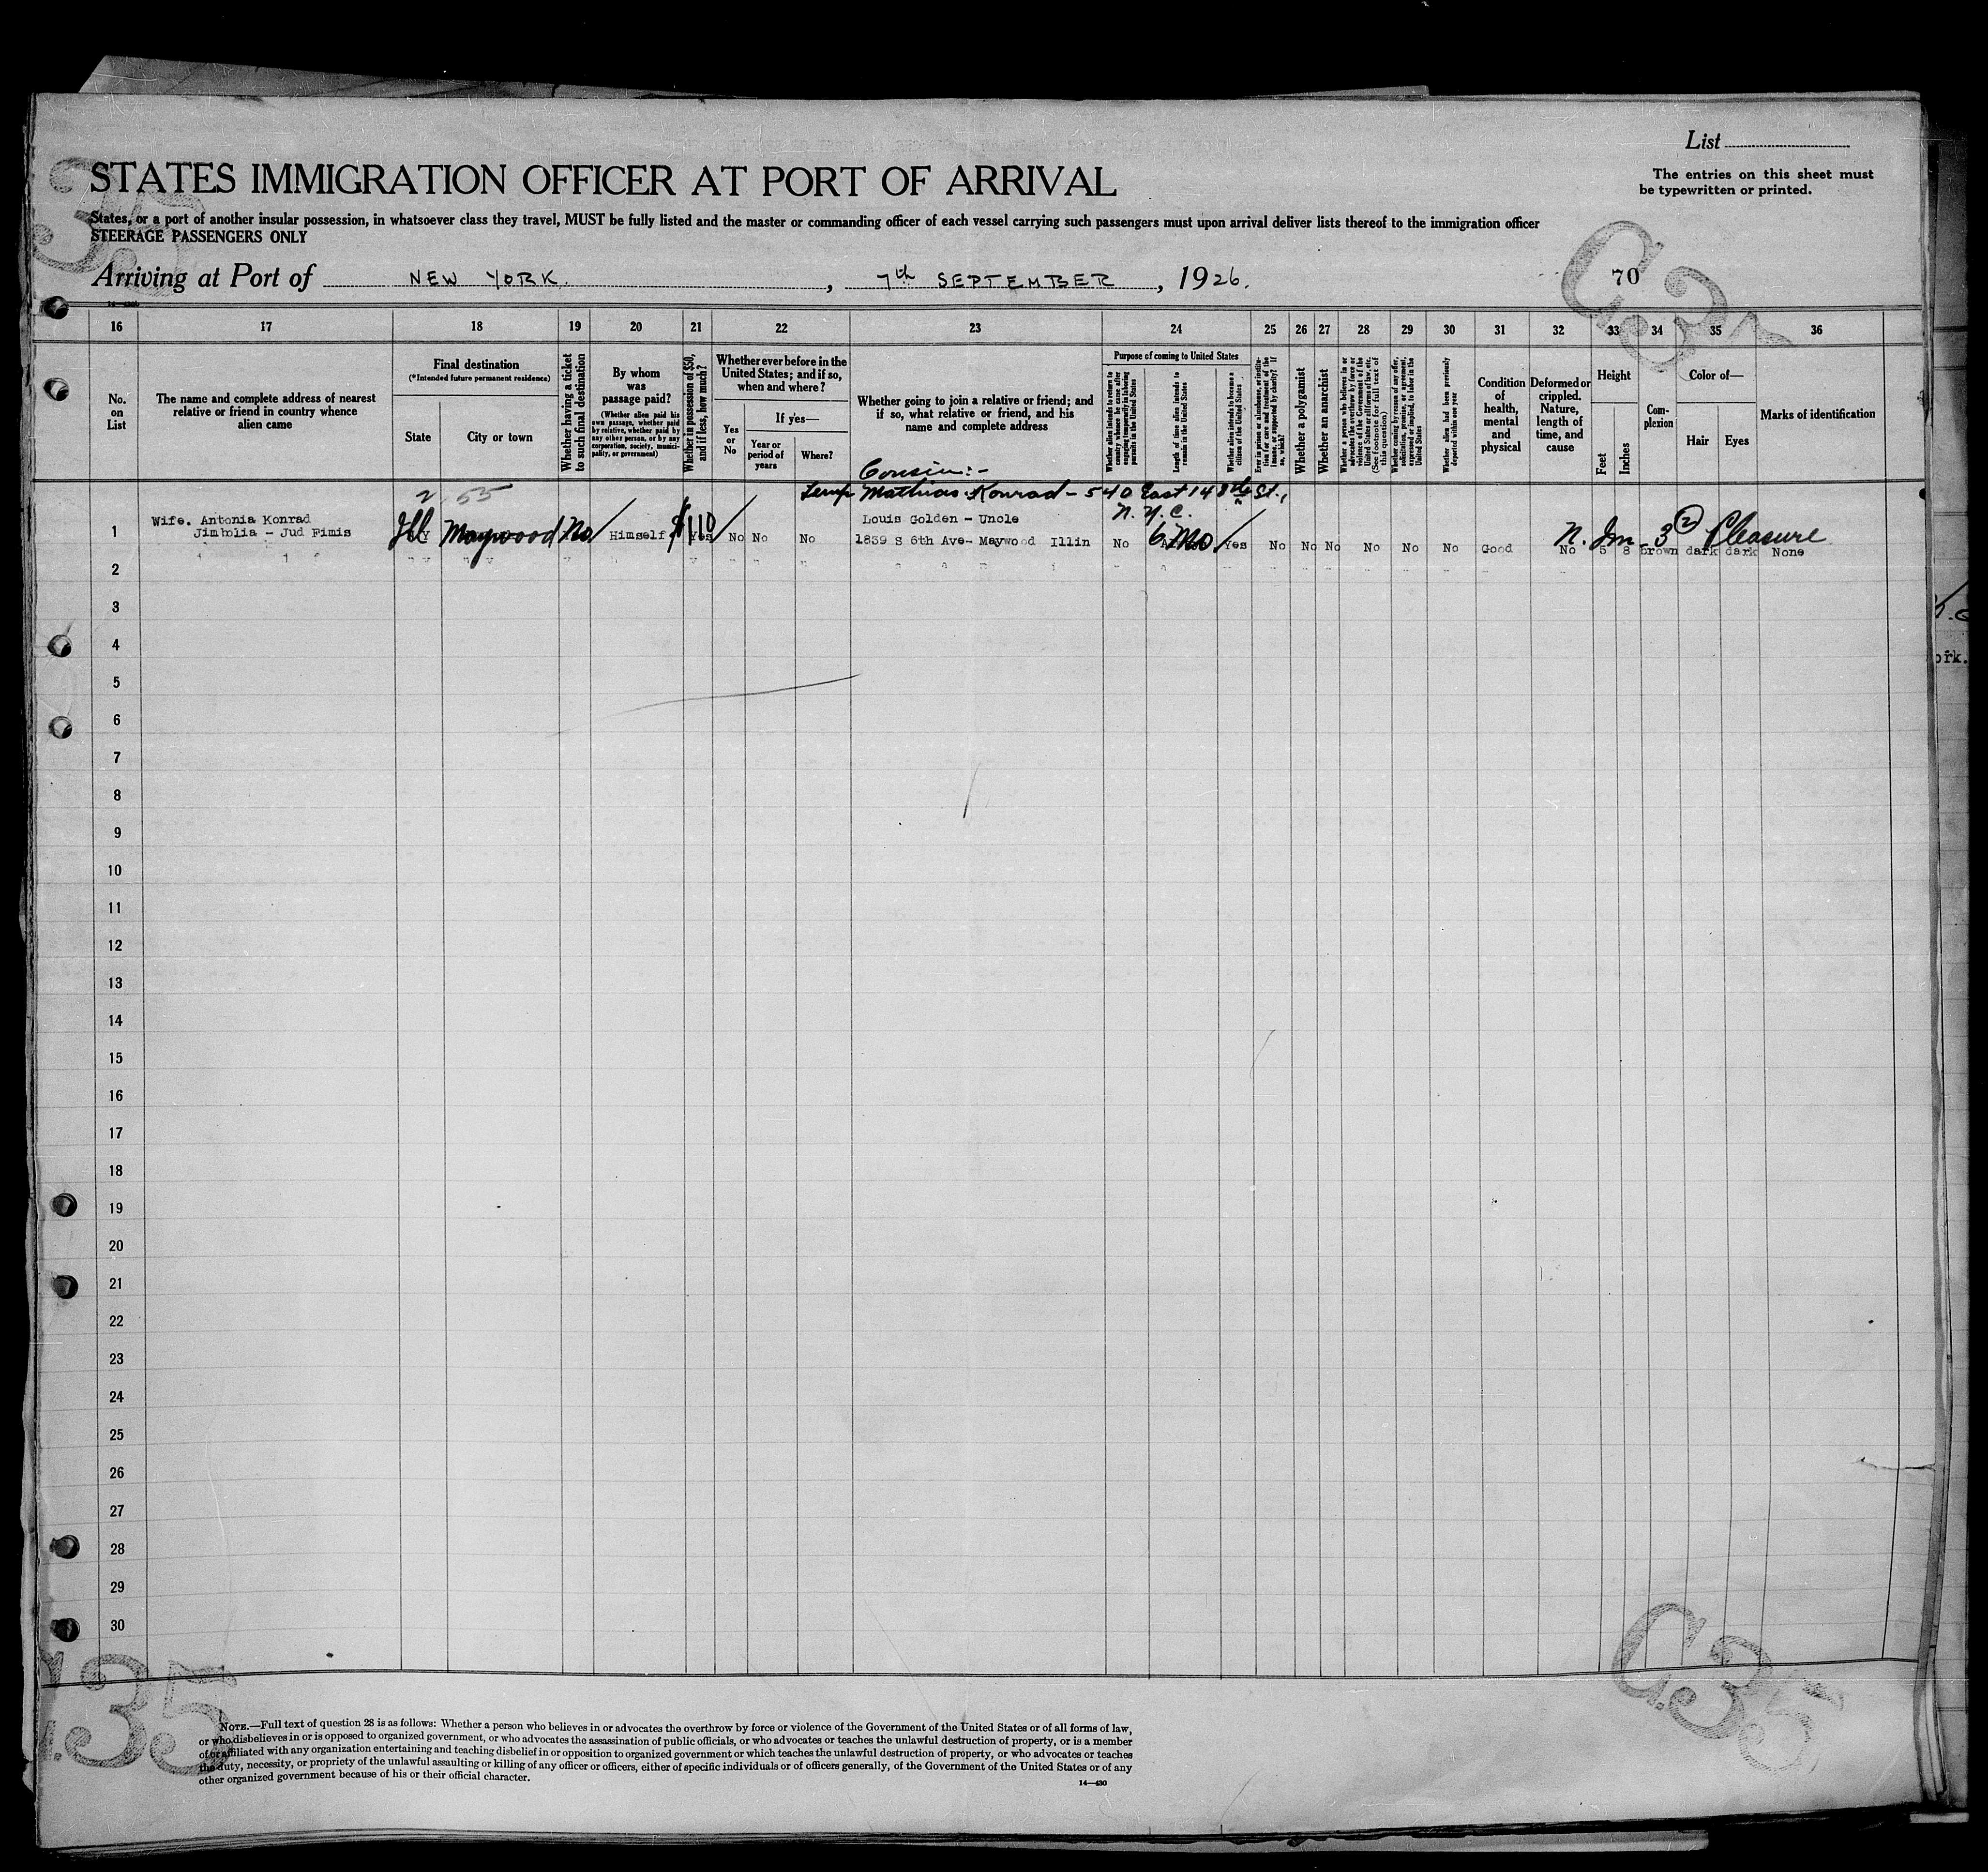 List
The entries on this sheet must
be typewritten or printed.
STATES IMMIGRATION OFFICER AT PORT OF ARRIVAL
States, or a port of another insular possession, in whatsoever class they travel, MUST be fully listed and the master or commanding officer of each vessel carrying such passengers must upon arrival deliver lists thereof to the immigration officer
STEERAGE PASSENGERS ONLY
Arriving at Port of NEW YORK. , 7th SEPTEMBER , 1926.
70
C35
16 17 18 19 20 21 22 23 24 25 26 27 28 29 30 31 32 33 34 35 36
No.
on
List
The name and complete address of nearest
relative or friend in country whence
alien came
Final destination
(*Intended future permanent residence)
State
City or town
Whether having a ticket
to such final destination
By whom
was
passage paid?
(Whether alien paid his
own passage, whether paid
by relative, whether paid by
any other person, or by any
corporation, society, munici-
pality, or government)
Whether in possession of $50,
and if less, how much?
Whether ever before in the
United States; and if so,
when and where?
Yes
or
No
If yes—
Year or
period of
years
Where?
Whether going to join a relative or friend; and
if so, what relative or friend, and his
name and complete address
Purpose of coming to United States
Whether alien intends to return to
country whence he came after
engaging temporarily in laboring
pursuits in the United States
Length of time alien intends to
remain in the United States
Whether alien intends to become a
citizen of the United States
Ever in prison or almshouse, or institu-
tion for care and treatment of the
insane, or supported by charity? If
so, which?
Whether a polygamist
Whether an anarchist
Whether a person who believes in or
advocates the overthrow by force or
violence of the Government of the
United States or all forms of law, etc.
(See footnote for full text of
this question)
Whether coming by reason of any offer,
solicitation, promise, or agreement,
expressed or implied, to labor in the
United States
Whether alien had been previously
deported within one year
Condition
of
health,
mental
and
physical
Deformed or
crippled.
Nature,
length of
time, and
cause
Height
Feet
Inches
Com-
plexion
Color of—
Hair
Eyes
Marks of identification
Cousin:-
2 55
Temp Mathias Konrad - 540 East 148th St.,
N. Y. C.
1
Wife. Antonia Konrad
Jimbolia - Jud Fimis
Ill Maywood No Himself $110 Yes No No No
Louis Golden - Uncle
1839 S 6th Ave- Maywood Illin
No 6 Mo Yes No No No No No No Good No 5 8 brown dark dark None
N. Im - 3 (2) Pleasure
2
3
4
5
6
7
8
9
10
11
12
13
14
15
16
17
18
19
20
21
22
23
24
25
26
27
28
29
30
C35
NOTE.—Full text of question 28 is as follows: Whether a person who believes in or advocates the overthrow by force or violence of the Government of the United States or of all forms of law,
or who disbelieves in or is opposed to organized government, or who advocates the assassination of public officials, or who advocates or teaches the unlawful destruction of property, or is a member
of or affiliated with any organization entertaining and teaching disbelief in or opposition to organized government or which teaches the unlawful destruction of property, or who advocates or teaches
the duty, necessity, or propriety of the unlawful assaulting or killing of any officer or officers, either of specific individuals or of officers generally, of the Government of the United States or of any
other organized government because of his or their official character.
14—430